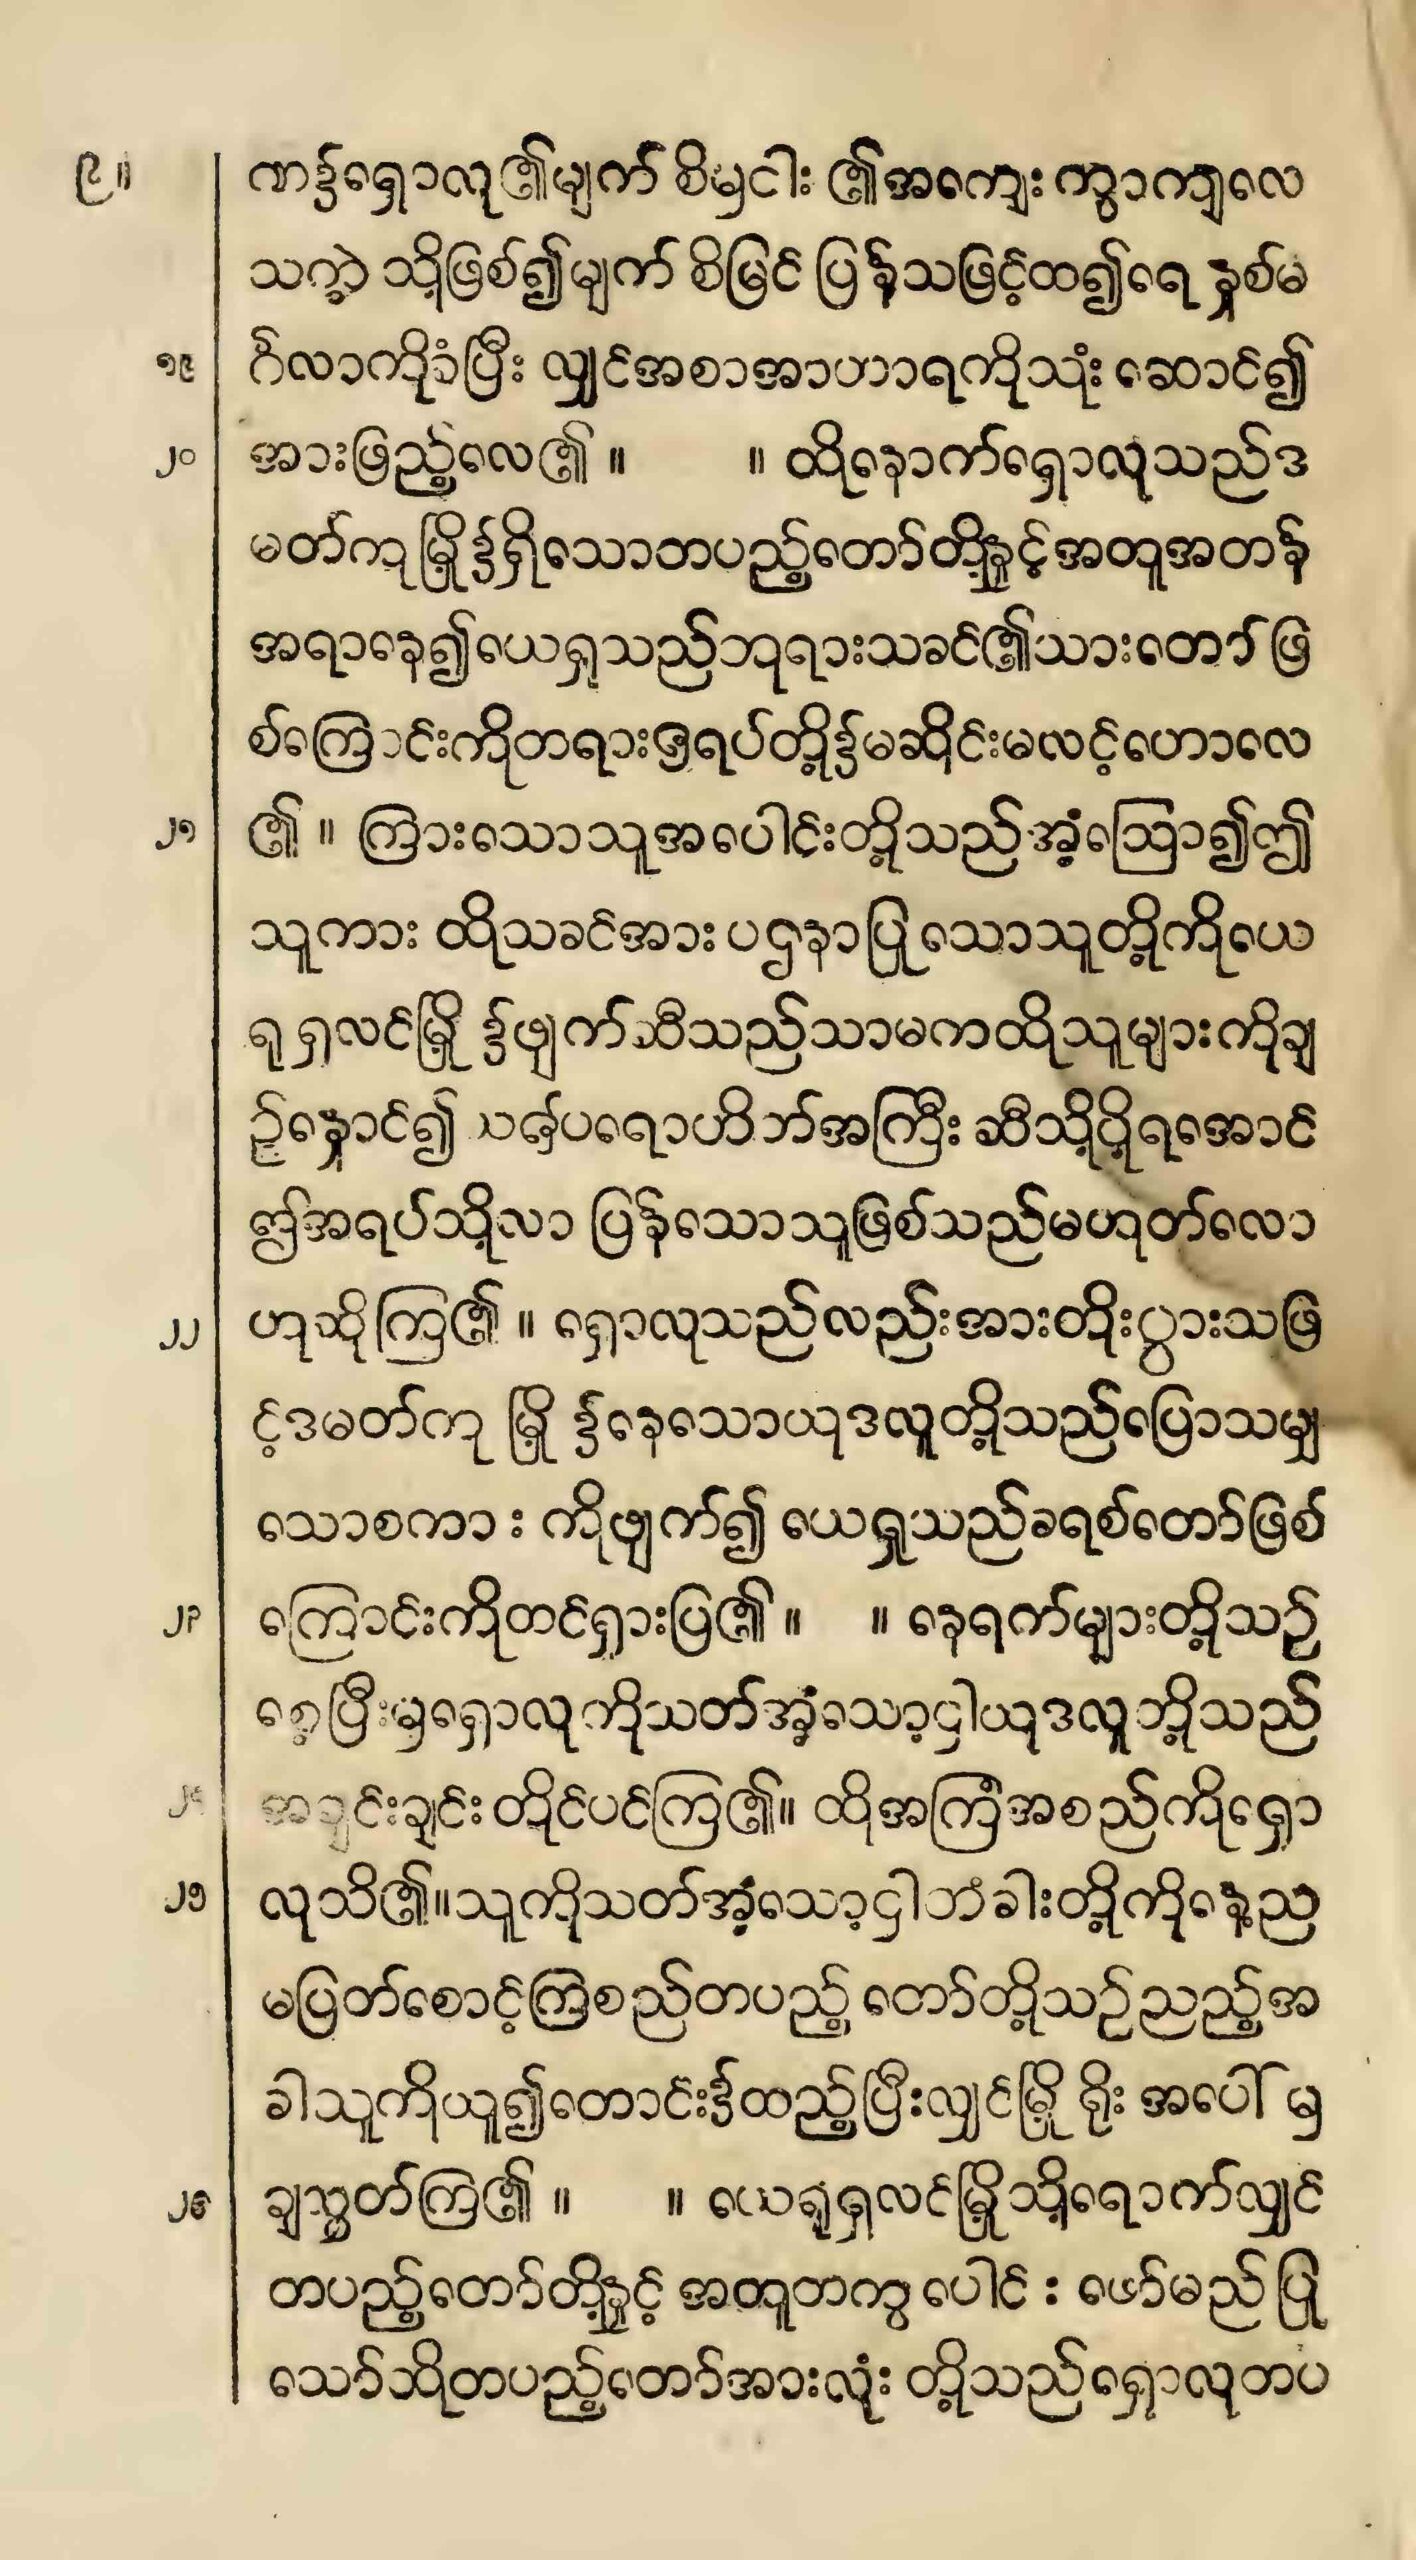 ၉။ ဏဒ်ရှောလု၏မျက် စိမှငါး ၏အကျေး ကွာကျလေ
သကဲ့ သို့ဖြစ်၍မျက် စိမြင် ပြန်သဖြင့်ထ၍ရေ နှစ်မ
၁၉ င်္ဂလာကိုခံပြီး လျှင်အစာအာဟာရကိုသုံး ဆောင်၍
၂၀ အားဖြည့်လေ၏ ။ ။ ထိုနောက်ရှောလုသည်ဒ
မတ်ကုမြို့ဒ်ရှိသောတပည့်တော်တို့နှင့်အတူအတန်
အရာနေ၍ယေရှုသည်ဘုရားသခင်၏သားတော် ဖြ
စ်ကြောင်းကိုတရားဇရပ်တို့ဒ်မဆိုင်းမလင့်ဟောလေ
၂၁ ၏ ။ ကြားသောသူအပေါင်းတို့သည်အံ့ဩ၍ဤ
သူကား ထိုသခင်အား ပဌနာပြု သောသူတို့ကိုယေ
ရုရှလင်မြို့ ဒ်ဖျက်ဆီသည်သာမကထိုသူများကိုချ
ဉ်နှောင်၍ ယဇ်ပရောဟိတ်အကြီး ဆီသို့ပို့ရအောင်
ဤအရပ်သို့လာ ပြန်သောသူဖြစ်သည်မဟုတ်လော
၂၂ ဟုဆိုကြ၏ ။ ရှောလုသည်လည်းအားတိုးပွားသဖြ
င့်ဒမတ်ကု မြို့ ဒ်နေသောယုဒလူတို့သည်ပြောသမျှ
သောစကား ကိုဖျက်၍ ယေရှုသည်ခရစ်တော်ဖြစ်
၂၃ ကြောင်းကိုတင်ရှားပြ၏ ။ ။ နေရက်များတို့သဉ်
စေ့ပြီးမှရှောလုကိုသတ်အံ့သော့ငှါယုဒလူတို့သည်
၂၄ အချင်းချင်း တိုင်ပင်ကြ၏။ ထိုအကြံအစည်ကိုရှော
၂၅ လုသိ၏။သူကိုသတ်အံ့သော့ငှါတံခါးတို့ကိုနေ့ည
မပြတ်စောင့်ကြစည်တပည့် တော်တို့သဉ်ညည့်အ
ခါသူကိုယူ၍တောင်းဒ်ထည့်ပြီးလျှင်မြို့ ရိုး အပေါ် မှ
၂၆ ချသွတ်ကြ၏ ။ ။ ယေရုရှလင်မြို့သို့ရောက်လျှင်
တပည့်တော်တို့နှင့် အတူတကွ ပေါင် း ဖော်မည် ပြု
သော်ဆိုတပည့်တော်အားလုံး တို့သည်ရှောလုတပ